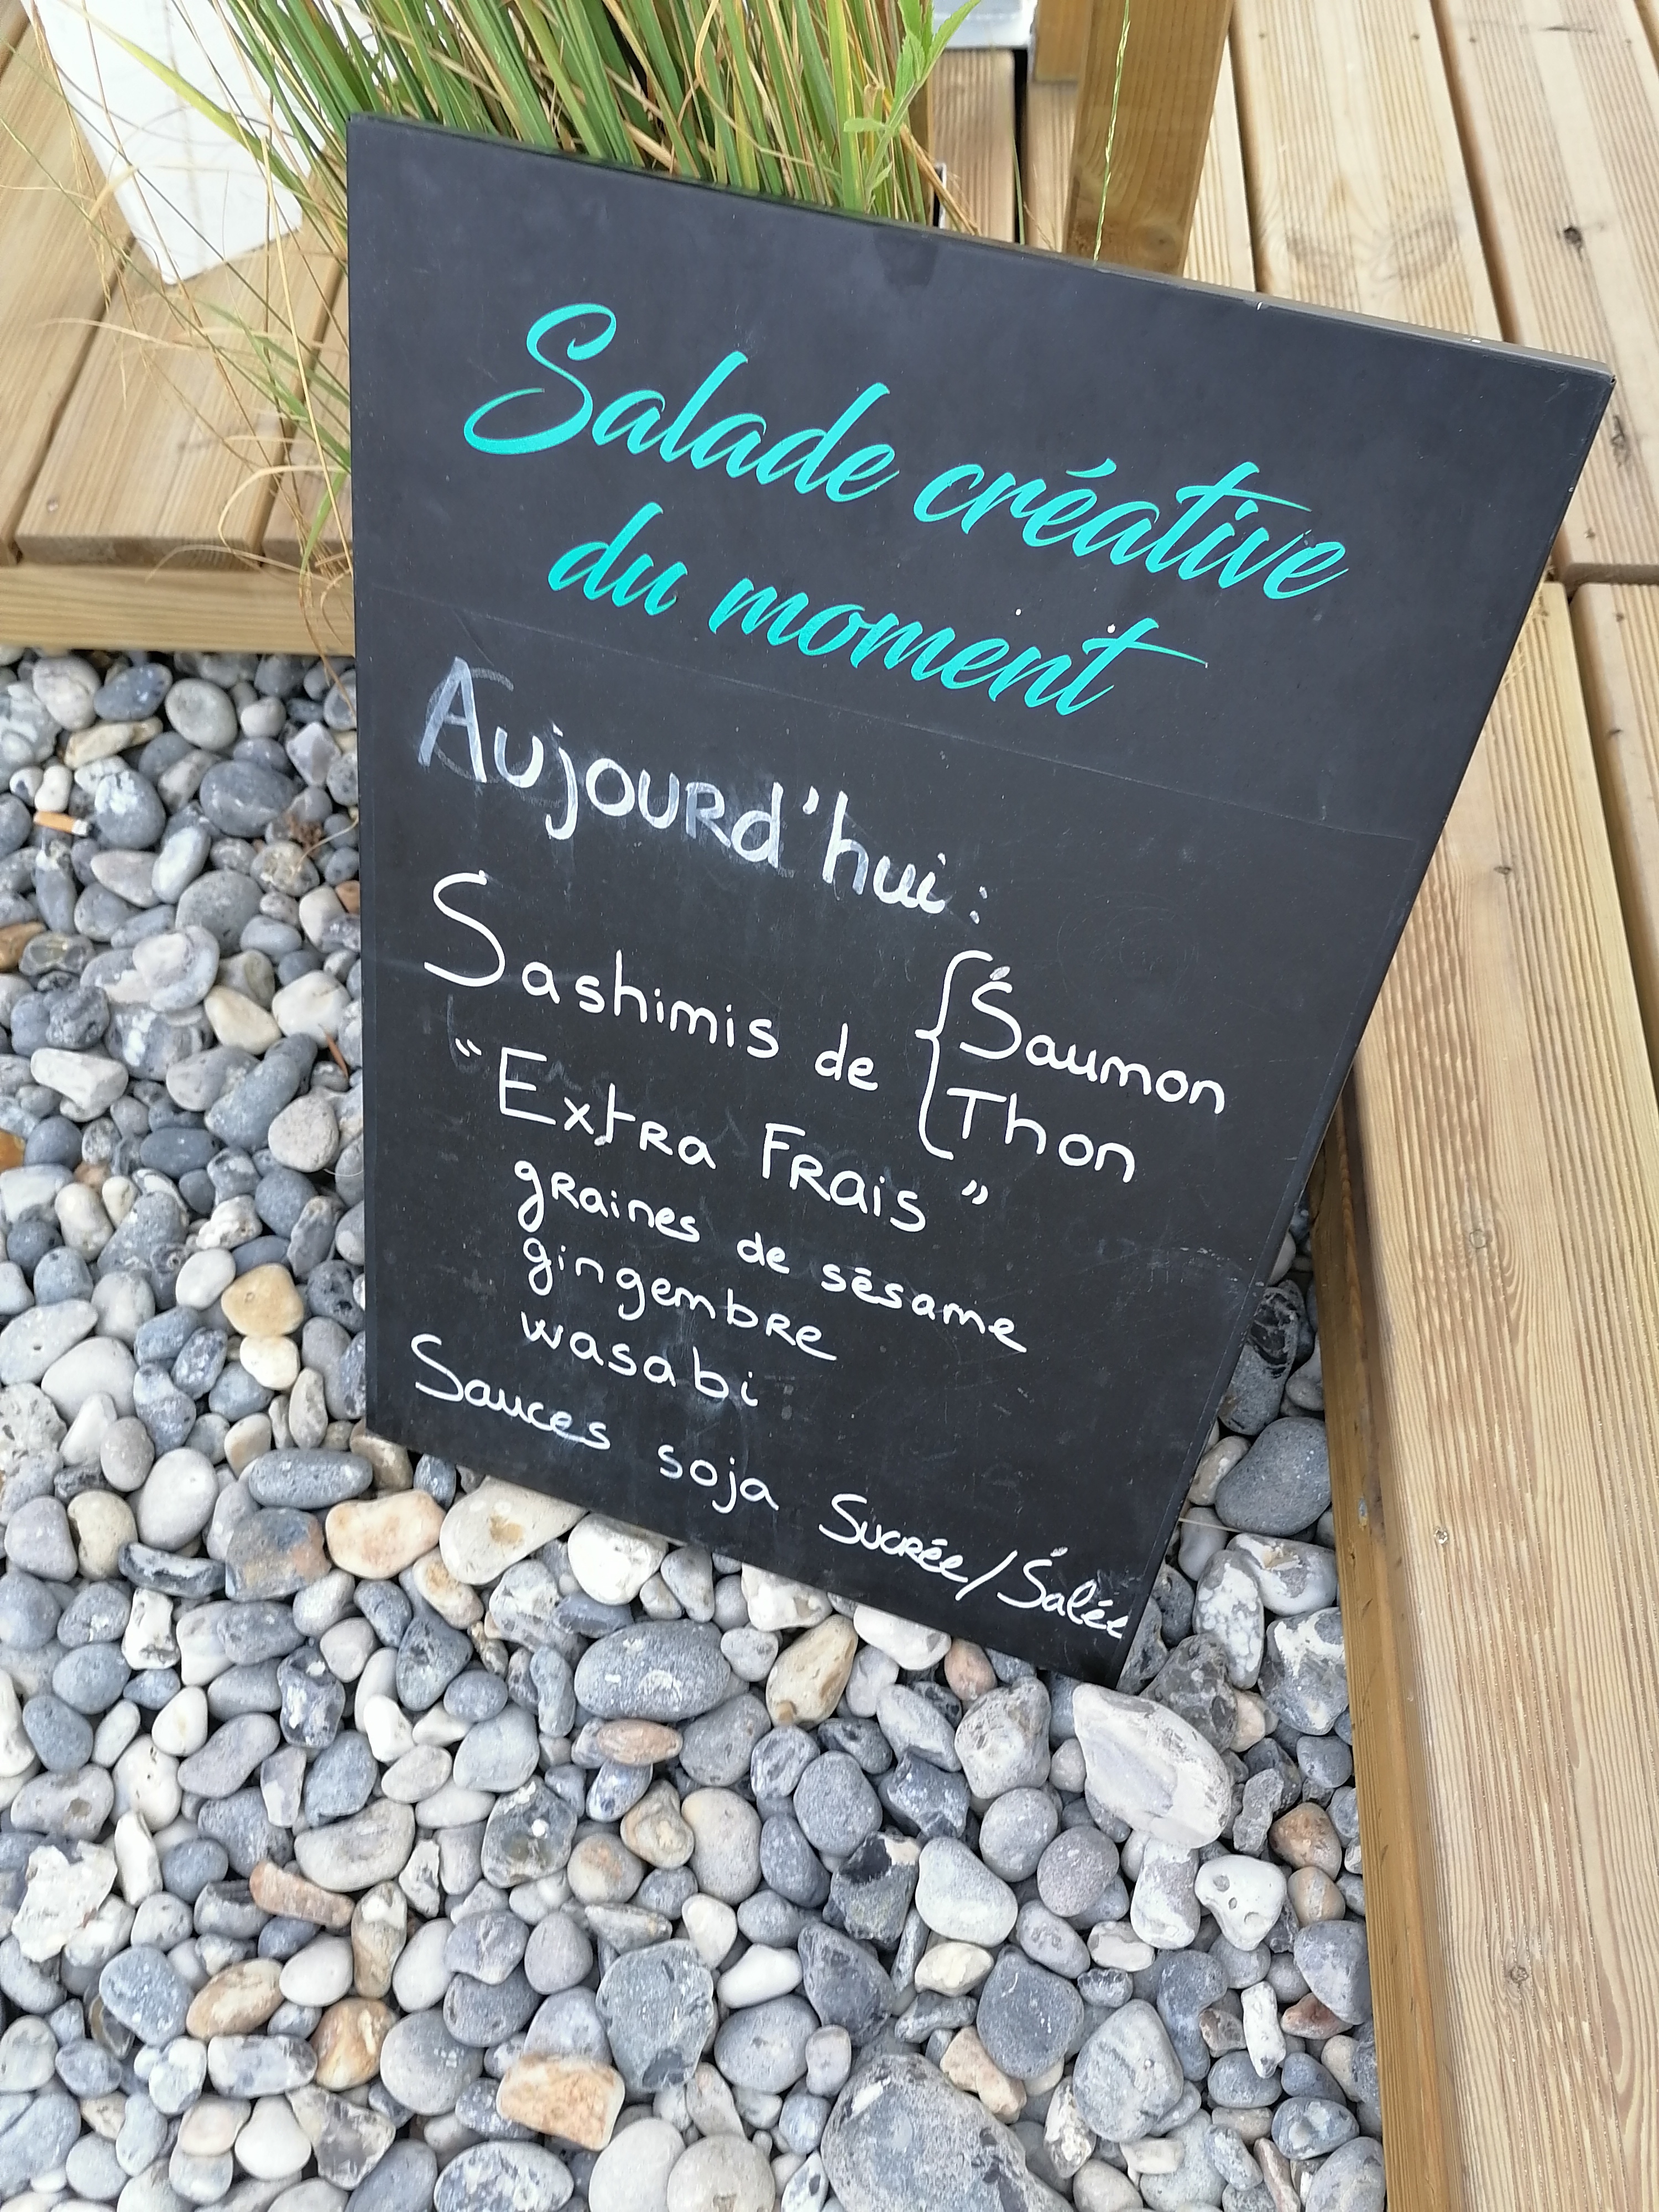 Salade créative
du moment
Aujourd'hui :
Sashimis de { Saumon
Thon
"Extra Frais"
graines de sésame
gingembre
wasabi
Sauces soja Sucrée/Salée